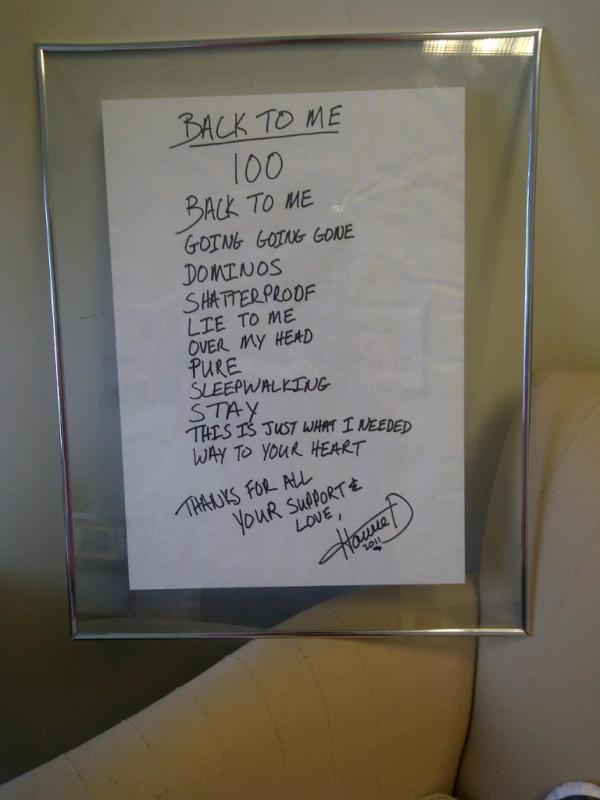 BACK TO ME
100
BACK TO ME
GOING GOING GONE
DOMINOS
SHATTERPROOF
LIE TO ME
OVER MY HEAD
PURE
SLEEPWALKING
STAY
THIS IS JUST WHAT I NEEDED
WAY TO YOUR HEART
THANKS FOR ALL
YOUR SUPPORT &
LOVE,
2011